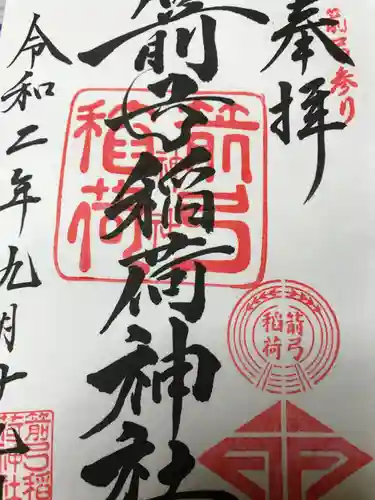 奉拝
箭弓参り
箭弓稲荷神社
令和二年九月十九
箭弓稲荷神社
箭弓稲荷
箭弓稲荷神社